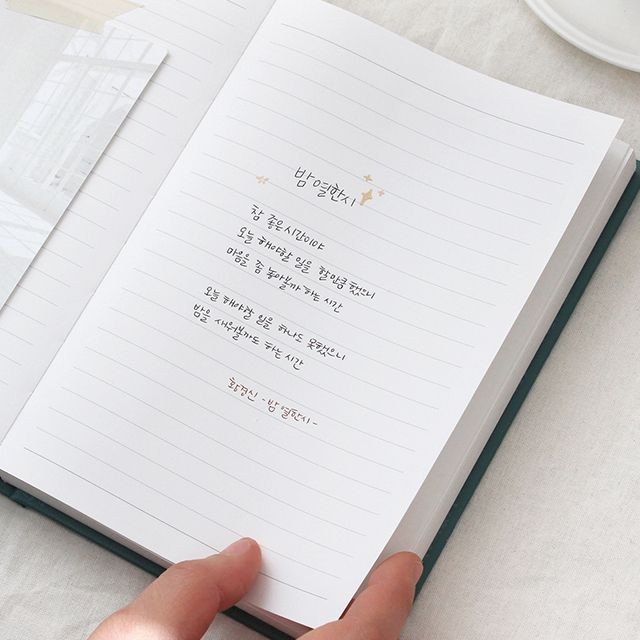 밤 열한시
참 좋은 시간이야
오늘 해야할 일을 할만큼 했으니
마음을 좀 놓아볼까 하는 시간
오늘 해야할 일을 하나도 못했으니
밤을 새워볼까도 하는 시간
황경신 -밤 열한시-